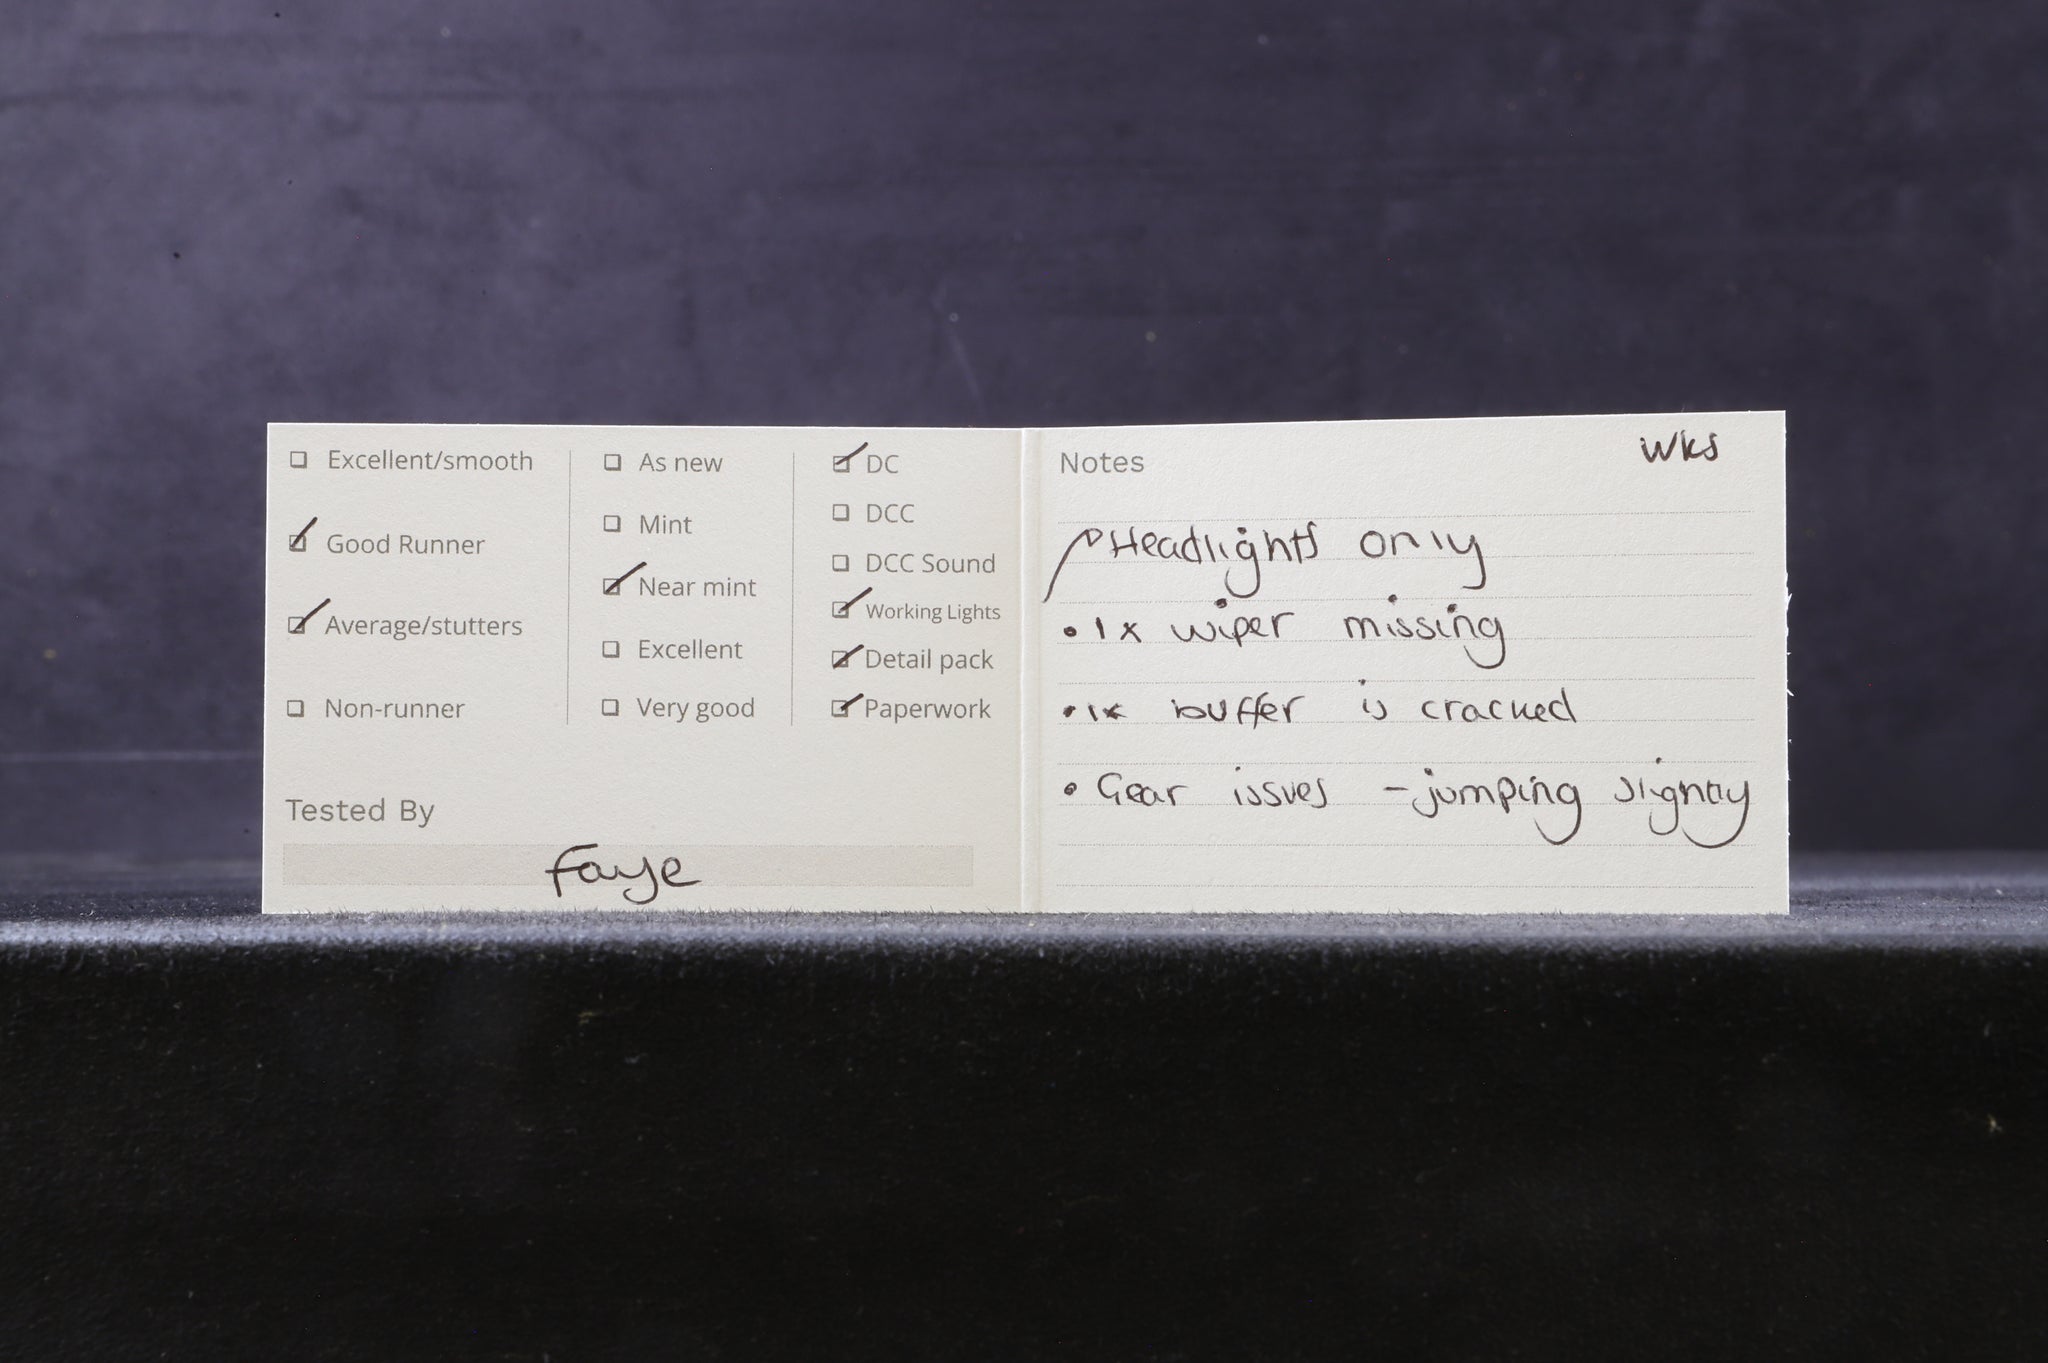 Excellent/smooth
Good Runner
Average/stutters
Non-runner
As new
Mint
Near mint
Excellent
Very good
DC
DCC
DCC Sound
Working Lights
Detail pack
Paperwork
Tested By
Faye
Notes
WKS
Headlights only
• 1x wiper missing
• 1x buffer is cracked
• Gear issues - jumping slightly